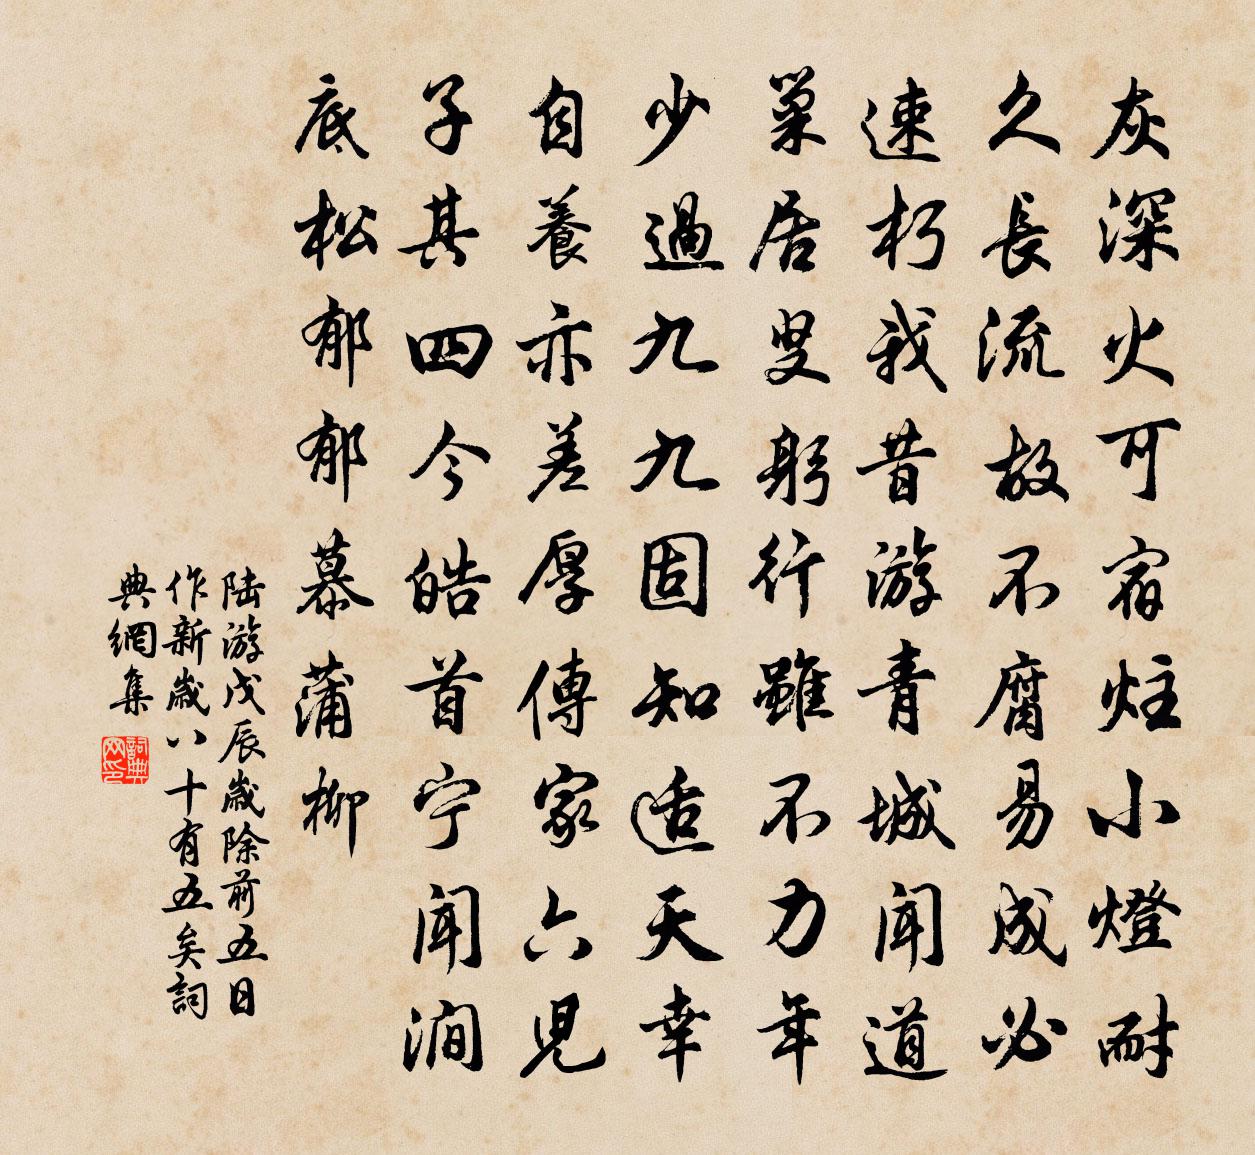 灰深火可宿炷小燈耐
久長流故不腐易成必
速朽我昔游青城聞道
巢居叟躬行雖不力年
少過九九固知适天幸
自養亦差厚傳家六兒
子其四今皓首宁聞澗
底松郁郁慕蒲柳
陆游戊辰歲除前五日
作新歲八十有五矣詞
典網集
詞典
网印